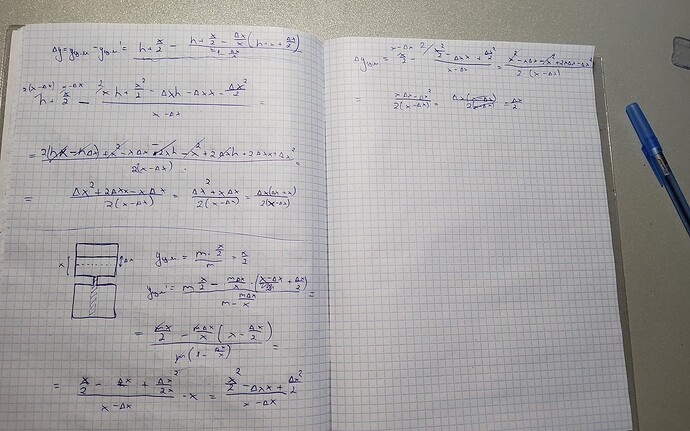 Δy = yц.м. - yц.м.' = h + x/2 - (h + x/2 - Δx/x (h + x - Δx/2)) / (1 - Δx/x)
h + x/2 - (xh + x²/2 - Δxh - Δxx - Δx²/2) / (x - Δx) =
= (2(hx - hΔx) + x² - xΔx - 2xh - x² + 2Δxh + 2Δxx + Δx²) / 2(x - Δx) =
= (Δx² + 2Δxx - xΔx) / 2(x - Δx) = (Δx² + xΔx) / 2(x - Δx) = Δx(Δx + x) / 2(x - Δx)
x Δx
yц.м. = (m · x/2) / m = x/2
yц.м.' = (m x/2 - mΔx/x · (x - Δx + Δx/2)) / (m - mΔx/x) =
= (mx/2 - mΔx/x (x - Δx/2)) / m(1 - Δx/x) =
= (x/2 - Δx + Δx²/2x) / (x - Δx) · x = (x²/2 - Δxx + Δx²/2) / (x - Δx)
Δyц.м. = x/2 - (x²/2 - Δxx + Δx²/2) / (x - Δx) = (x² - xΔx - x² + 2xΔx - Δx²) / 2·(x - Δx)
= (xΔx - Δx²) / 2(x - Δx) = Δx(x - Δx) / 2(x - Δx) = Δx/2